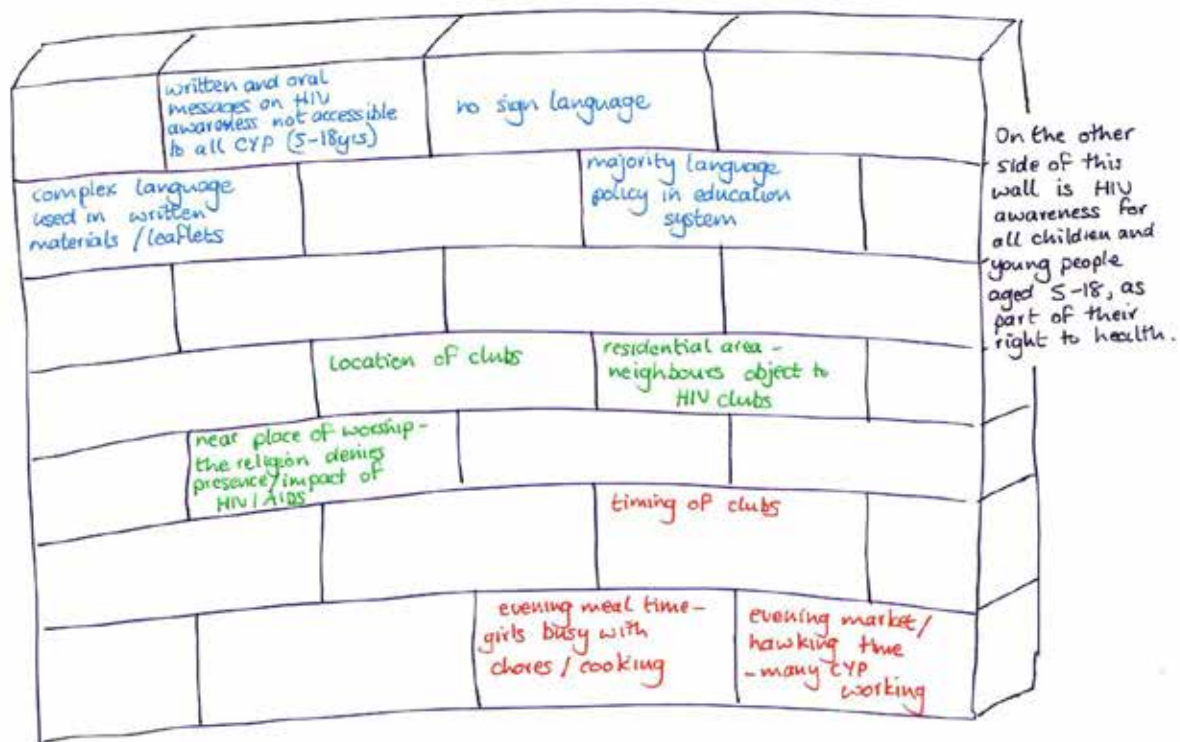 written and oral
messages on HIV
awareness not accessible
to all CYP (5-18yrs)
no sign language
complex language
used in written
materials / leaflets
majority language
policy in education
system
location of clubs
residential area -
neighbours object to
HIV clubs
near place of worship -
the religion denies
presence/impact of
HIV/AIDS
timing of clubs
evening meal time -
girls busy with
chores / cooking
evening market/
hawking time
- many CYP
working
On the other
side of this
wall is HIV
awareness for
all children and
young people
aged 5-18, as
part of their
right to health.